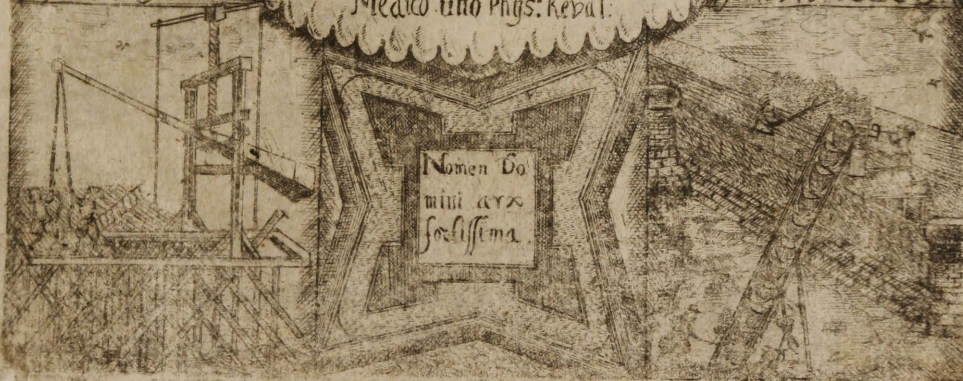 Medico und Phys: Reval:
Nomen Do
mini arx
fortissima.